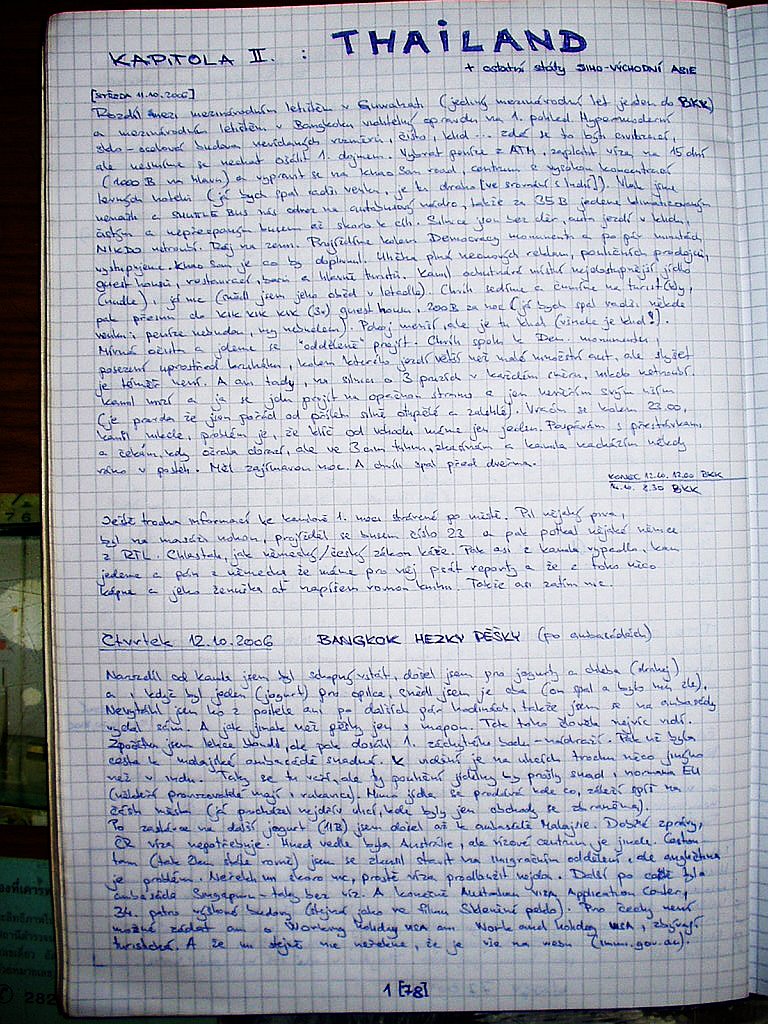 KAPITOLA II. : THAILAND
+ ostatní státy JIHO-VÝCHODNÍ ASIE
[STŘEDA 11.10.2006]
Rozdíl mezi mezinárodním letištěm v Guwahati (jediný mezinárodní let jeden do BKK)
a mezinárodním letištěm v Bangkoku viditelný opravdu na 1. pohled. Hypermoderní
sklo-ocelová budova nevídaných rozměrů, čisto, klid... zdá se to být civilizací,
ale nesmíme se nechat ošálit 1. dojmem. Vybrat peníze z ATM, zaplatit víza na 15 dní
(1000 B na hlavu) a vypravit se na Khao San road, centrum s vysokou koncentrací
levných hotelů (já bych spal radši venku, je tu draho [ve srovnání s Indií]). Vlak jsme
nenašli a SHUTTLE BUS nás odvez na autobusový nádro, takže za 35B jedeme klimatizovaným
čistým a nepřecpaným busem až skoro k cíli. Silnice jsou bez děr, auta jezdí v klidu,
NIKDO netroubí. Ráj na zemi. Projíždíme kolem Democracy monumentu a po pár minutách
vystupujeme. Khao San je co by doplnil. Ulička plná neonových reklam, pouličních prodejců,
guest housů, restaurací, barů a hlavně turistů. Kamil ochutnává místní nejdostupnější jídlo
(nudle), já nic (snědl jsem jeho oběd v letadle). Chvíli sedíme a čumíme na turist(k)y,
pak přesun do KIK KIK KIK (3x) guest housu, 200B za noc (já bych spal radši někde
venku; peníze nebudou, my nebudem). Pokoj menší, ale je tu klid (všude je klid!).
Mírná očista a jdeme se "odděleně" projít. Chvíli spolu k Dem. monumentu,
posezení uprostřed kruháku, kolem kterého jezdí větší než malé množství aut, ale slyšet
je téměř není. A ani tady, na silnici o 3 pruzích v každém směru, nikdo netroubí.
Kamil mizí a já se jdu projít na opačnou stranu a jen nevěřím svým uším
(je pravda že jsou pořád od příletu silně otupělé a zalehlé). Vracím se kolem 23.00,
Kamil nikde, problém je, že klíč od vchodu máme jen jeden. Pospávám s přestávkami
a čekám, kdy ožrala dorazí, ale ve 3 am tuhnu, zhasínám a kamila nacházím někdy
ráno v posteli. Měl zajímavou noc. A chvíli spal před dveřma.
KONEC 12.10. 12.00 BKK
14.10. 8.30 BKK
Ještě trochu informací ke kamilově 1. noci strávené po městě. Pil nějaký piva,
byl na masáži nohou, projížděl se busem číslo 23 a pak potkal nějaké němce
z RTL. Chlastali, jak německý/český zákon káže. Pak asi z kamila vypadlo, kam
jedeme a pán z německa že máme pro něj psát reporty a že z toho něco
kápne a jeho ženuška ať napíšem rovnou knihu. Takže asi zatím nic.
Čtvrtek 12.10.2006 BANGKOK HEZKY PĚŠKY (po ambasádách)
Narozdíl od kamila jsem byl schopný vstát, došel jsem pro jogurty a chleba (drahej)
a, i když byl jeden (jogurt) pro opilce, snědl jsem je oba (on spal a bylo mu zle).
Nevytáhl jsem ho z postele ani po dalších pár hodinách, takže jsem se na ambasády
vydal sám. A jak jinak než pěšky jen s mapou. Tak toho člověk nejvíc vidí.
Zpočátku jsem lehce bloudil, ale pak dosáhl 1. záchytného bodu - nádraží. Pak už byla
cesta k malajské ambasádě snadná. K vidění je na ulicích trochu něco jiného
než v Indii. Taky se tu vaří, ale ty pouliční jídelny by prošly snad i normama EU
(někteří provozovatelé mají i rukavice). Mimo jídla se prodává kde co, záleží spíš na
části města (já procházel nejdřív ulicí, kde byly jen obchody se zbraněma).
Po zastávce na další jogurt (11B) jsem došel až k ambasádě Malajsie. Dobré zprávy,
ČR víza nepotřebuje. Hned vedle byla Austrálie, ale vízové centrum je jinde. Cestou
tam (tak žen stále rovně) jsem se zkusil stavit na imigračním oddělení, ale angličtina
je problém. Neřekli mi skoro nic, prostě víza prodloužit nejde. Další po cestě byla
ambasáda Singapuru - taky bez víz. A konečně Australian Visa Application Center,
34. patro výškové budovy (stejné jako ve filmu Skleněné peklo). Pro čechy není
možné žádat ani o Working holiday visa ani Work and holiday visa, zbývají
turistická. A že mi stejně nic neřeknou, že je vše na webu (immi.gov.au).
1 [78]
282